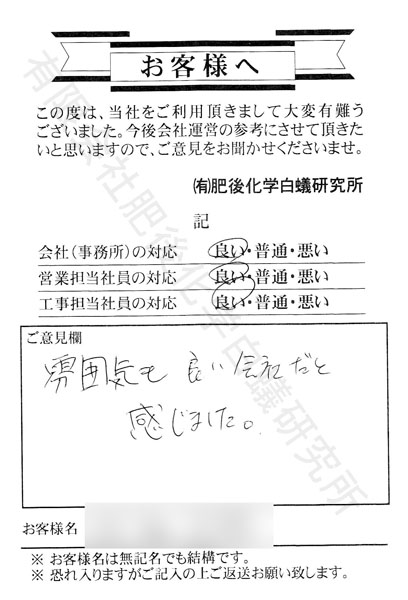 お客様へ
この度は、当社をご利用頂きまして大変有難う
ございました。今後会社運営の参考にさせて頂きた
いと思いますので、ご意見をお聞かせくださいませ。
㈲肥後化学白蟻研究所
記
会社（事務所）の対応　良い・普通・悪い
営業担当社員の対応　良い・普通・悪い
工事担当社員の対応　良い・普通・悪い
ご意見欄
雰囲気も 良い会社だと
感じました。
お客様名
※ お客様名は無記名でも結構です。
※ 恐れ入りますがご記入の上ご返送お願い致します。
有限会社肥後化学白蟻研究所